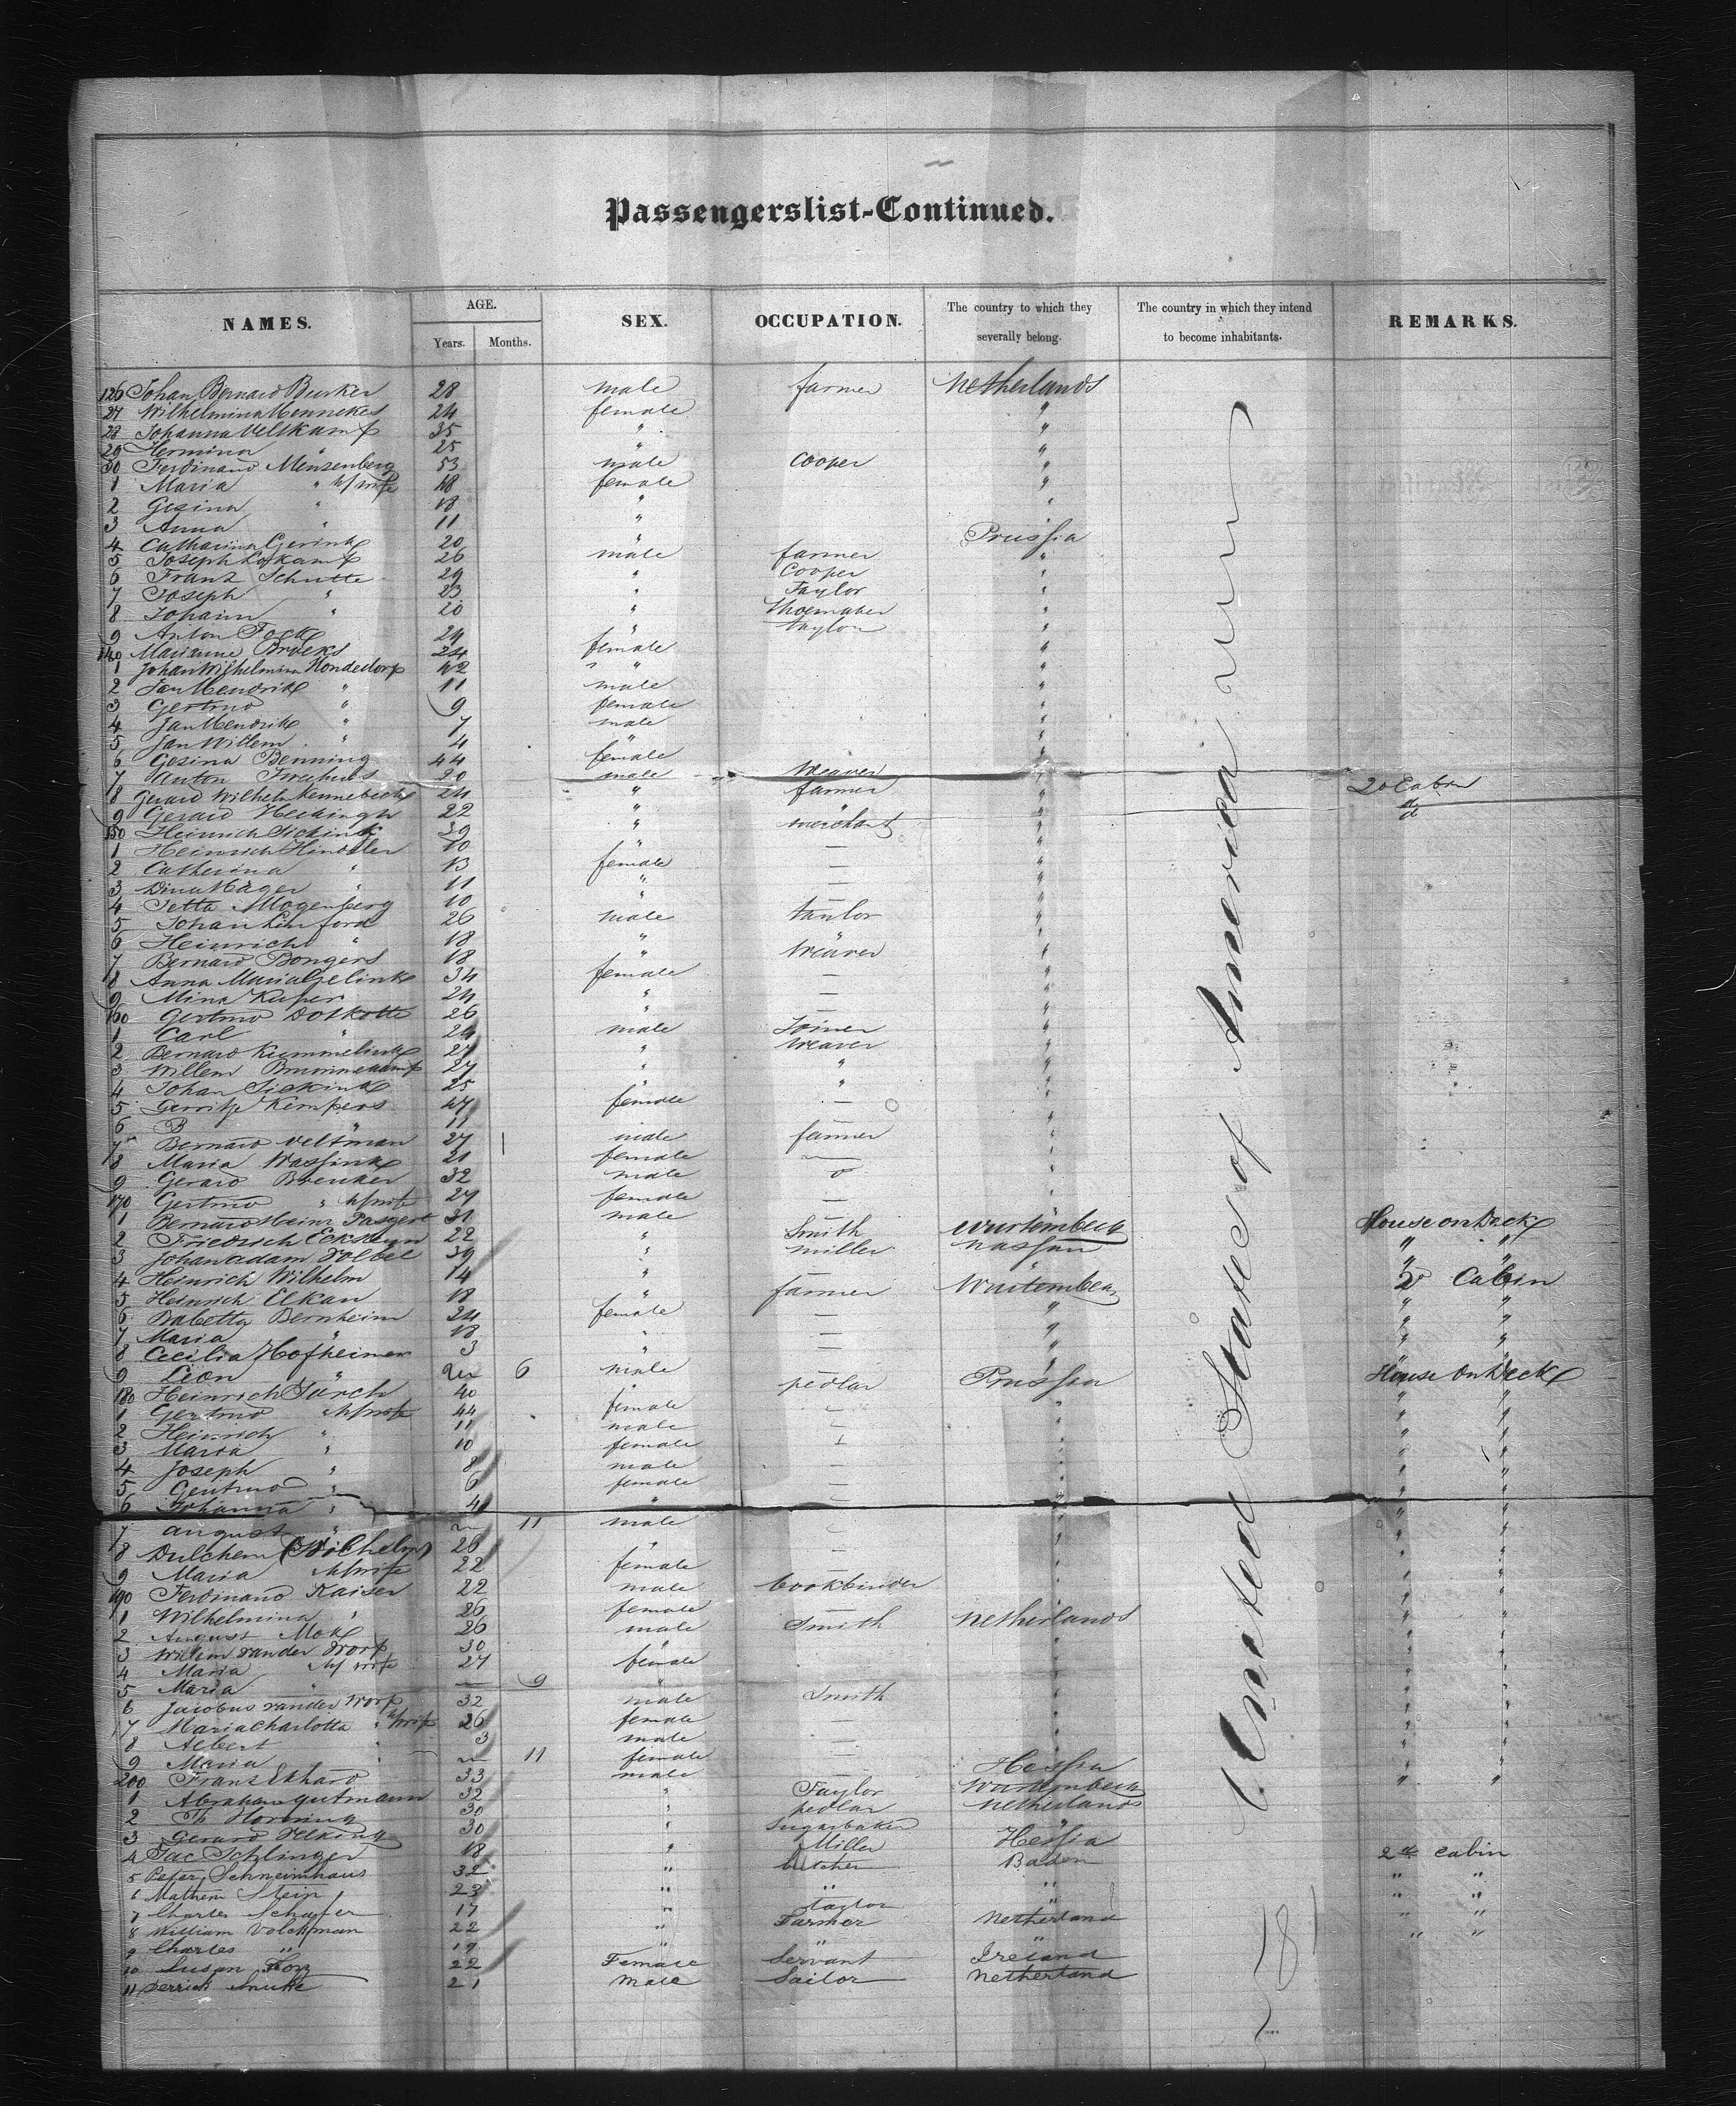 Passengerslist-Continued.
NAMES. AGE. Years. Months. SEX. OCCUPATION. The country to which they severally belong. The country in which they intend to become inhabitants. REMARKS.
United States of America
126 Johan Bernard Busker 28 male farmer Netherlands
27 Wilhelmina Mennekes 24 female "
28 Johanna Veltkamp 35 " "
29 Hermina " 25 " "
30 Ferdinand Mensenberg 53 male Cooper "
1 Maria " h/wife 48 female "
2 Gesina " 18 " "
3 Anna " 11 "
4 Catharina Gerink 20 " Prussia
5 Joseph 26 male farmer "
6 Franz Schutte 29 " Cooper "
7 Joseph " 23 " Taylor "
8 Johann " 20 " Shoemaker "
9 Anton Fock 24 " taylor "
140 Marianne Broeks 24 female "
1 Johan Wilhelmina 42 " "
2 Jan Hendrik " 11 male "
3 Gertrud " 9 female "
4 Jan Hendrik " 7 male "
5 Jan Willem " 4 " "
6 Gesina Benning 44 female "
7 Anton 20 male Weaver "
8 Gerard Wilhelm 24 " farmer " 2d Cabin
9 Gerard 22 " " d
150 Heinrich Sicking 39 " merchant "
1 Heinrich 10 " — "
2 Catherina " 13 female — "
3 Dina " 11 " — "
4 Jetta Mogenberg 10 " — "
5 Johan 26 male taylor "
6 Heinrich " 18 " "
7 Bernard Bongers 18 " Weaver "
8 Anna Maria Gelink 34 female — "
9 Mina Kuper 24 " — "
160 Gertrud Dotkotte 26 " — "
1 Carl " 24 male Joiner "
2 Bernard Kummelink 27 " Weaver "
3 Willem 27 " " "
4 Johan Sicking 25 " " "
5 Kempers 47 female — "
6 B " 11 " — "
7 Bernard Veltman 27 male farmer "
8 Maria Wassink 21 female — "
9 Gerard Breuker 32 male "
170 Gertrud " h/wife 27 female — "
1 Bernard Heinr 31 male —
2 Friedrich 22 " Smith Wurtemberg House on Deck
3 Johan Adam 39 " miller Nassau " "
4 Heinrich Wilhelm 14 " — " 2d Cabin
5 Heinrich Elkan 18 " farmer Wurtemberg " "
6 Babetta Bernheim 24 female — " " "
7 Maria " 18 " — " " "
8 Cecilia Hofheimer 3 " — " " "
9 Leon " 6 male
180 Heinrich 40 " pedlar Prussia House on Deck
1 Gertrud " h/wife 44 female — " " "
2 Heinrich " 11 male — " " "
3 Maria " 10 female — " " "
4 Joseph " 8 male — " " "
5 Gertrud " 6 female — " " "
6 Johanna " 4 " — " " "
7 August " — 11 male — " " "
8 Dulchem (Wilhelm) 26 " — " " "
9 Maria h/wife 22 female — " " "
190 Ferdinand Kaiser 22 male bookbinder " " "
1 Wilhelmina " 26 female — " " "
2 August Mok 26 male Smith Netherlands " "
3 Willem van der Worp 30 " " " "
4 Maria h/wife 27 female " " "
5 Maria " — 9 " " " "
6 Jacobus van der Worp 32 male Smith " " "
7 Maria Charlotta " h/wife 26 female — " " "
8 Albert " 3 male — " " "
9 Maria " — 11 female — " " "
200 Franz Ekhard 33 male Hessia " "
1 Abraham Gutmann 32 " Taylor Wurtemberg
2 Th 30 " pedlar Netherlands
3 Gerard 30 " Sugarbaker "
4 Jac Schlinger 18 " Miller Hessia 2d Cabin
5 Peter Schneimhaus 32 " butcher Baden " "
6 Mathem Stein 23 " " " " "
7 Charles Schafer 17 " taylor " " "
8 William Volckman 22 " Farmer Netherland " "
9 Charles " 19 " " "
10 Susan 22 Female Servant Ireland
11 Derrick 21 Male Sailor Netherland